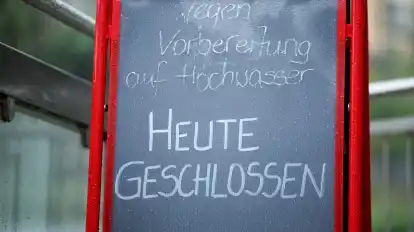 wegen
Vorbereitung
auf Hochwasser
HEUTE
GESCHLOSSEN